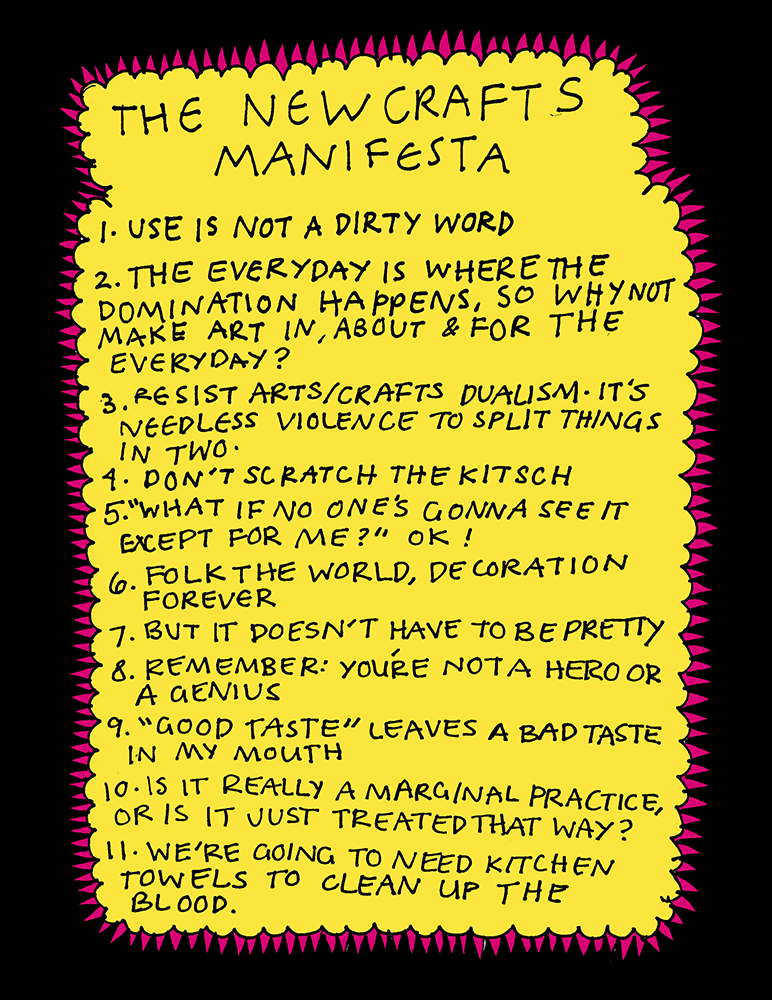 THE NEW CRAFTS
MANIFESTA
1. USE IS NOT A DIRTY WORD
2. THE EVERYDAY IS WHERE THE
DOMINATION HAPPENS, SO WHY NOT
MAKE ART IN, ABOUT & FOR THE
EVERYDAY?
3. RESIST ARTS/CRAFTS DUALISM. IT'S
NEEDLESS VIOLENCE TO SPLIT THINGS
IN TWO.
4. DON'T SCRATCH THE KITSCH
5. "WHAT IF NO ONE'S GONNA SEE IT
EXCEPT FOR ME?" OK!
6. FOLK THE WORLD, DECORATION
FOREVER
7. BUT IT DOESN'T HAVE TO BE PRETTY
8. REMEMBER: YOU'RE NOT A HERO OR
A GENIUS
9. "GOOD TASTE" LEAVES A BAD TASTE
IN MY MOUTH
10. IS IT REALLY A MARGINAL PRACTICE,
OR IS IT JUST TREATED THAT WAY?
11. WE'RE GOING TO NEED KITCHEN
TOWELS TO CLEAN UP THE
BLOOD.